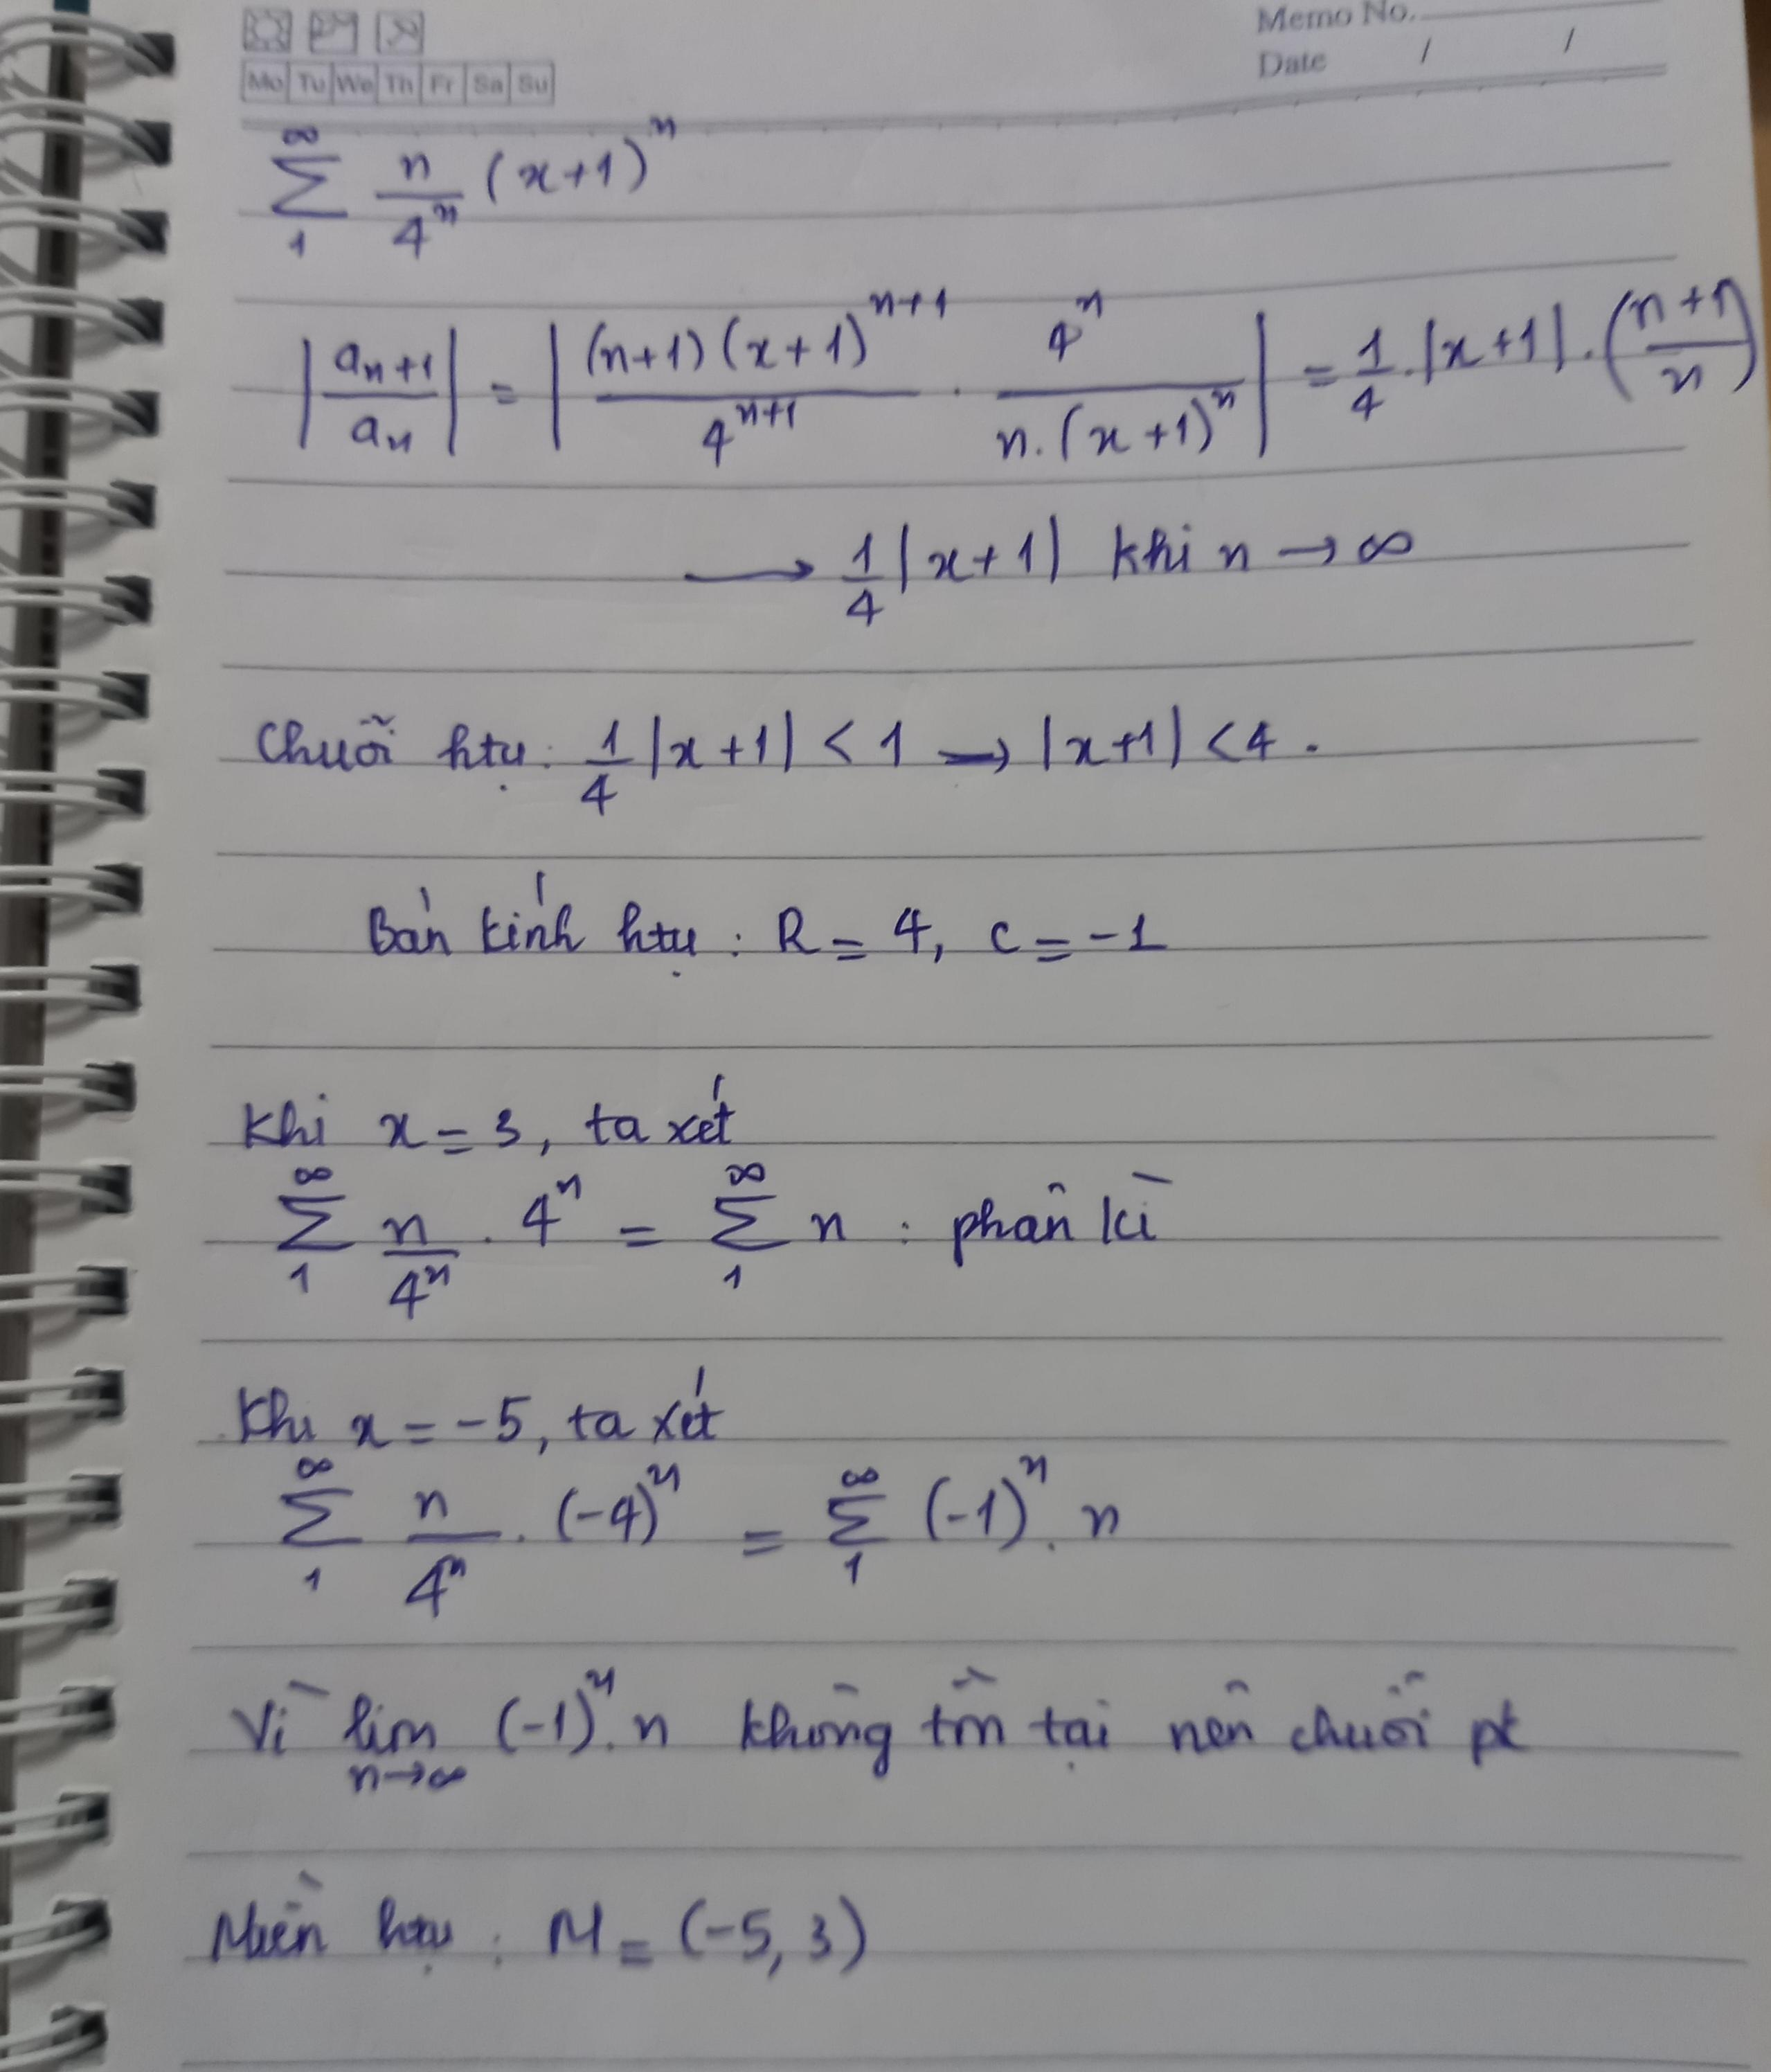 Memo No.
Date / /
Mo Tu We Th Fr Sa Su
∑_1^∞ n/4^n (x+1)^n
|a_{n+1}/a_n| = |(n+1)(x+1)^{n+1}/4^{n+1} · 4^n/n.(x+1)^n| = 1/4 . |x+1| . ((n+1)/n)
⟶ 1/4 |x+1| khi n → ∞
Chuỗi htụ: 1/4 |x+1| < 1 → |x+1| < 4 .
Bán kính htụ : R = 4, c = -1
Khi x = 3, ta xét
∑_1^∞ n/4^n . 4^n = ∑_1^∞ n : phân kì
Khi x = -5, ta xét
∑_1^∞ n/4^n . (-4)^n = ∑_1^∞ (-1)^n . n
Vì lim_{n→∞} (-1)^n . n không tồn tại nên chuỗi pk
Miền htụ : M = (-5, 3)